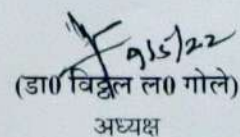 9/5/22
(डा0 विठ्ठल ल0 गोले)
अध्यक्ष